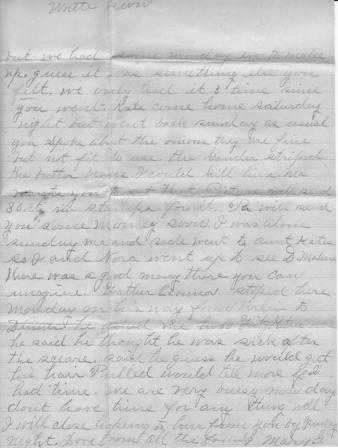 Write soon
but we had some monday eve to make
up. guess it was something else you
felt. we only had it 3 time since
you went. Kate come home saturday
night but went back sunday as usual
you spoke about the onions they are fine
but not fit to use. the
the button beans I could kill him. Ma
wants you to get that will send
stamps for it. Pa will send
you some money soon. I was alone
sunday me and Sade went to aunt Kates
so I and Nora went up to see D Malone
there was a good many there you can
imagine. Father Connor stoped here
monday on his way from to
Dinner he asked me how
he said he thought he was sick after
the scare. said he guess he would get
his hair Pulled would tell more if I
had time. we are very buisy now day
dont have time for any thing well
I will close hoping to hear from you by friday
night. Love from all the